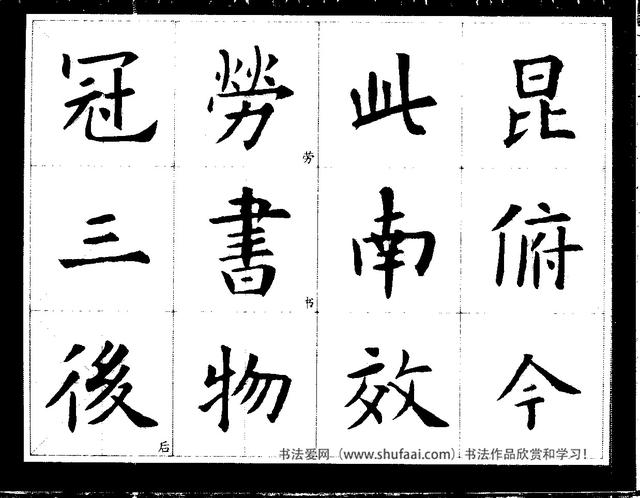 昆俯今
此南效
勞劳書书物
冠三後后
书法爱网（www.shufaai.com）书法作品欣赏和学习！